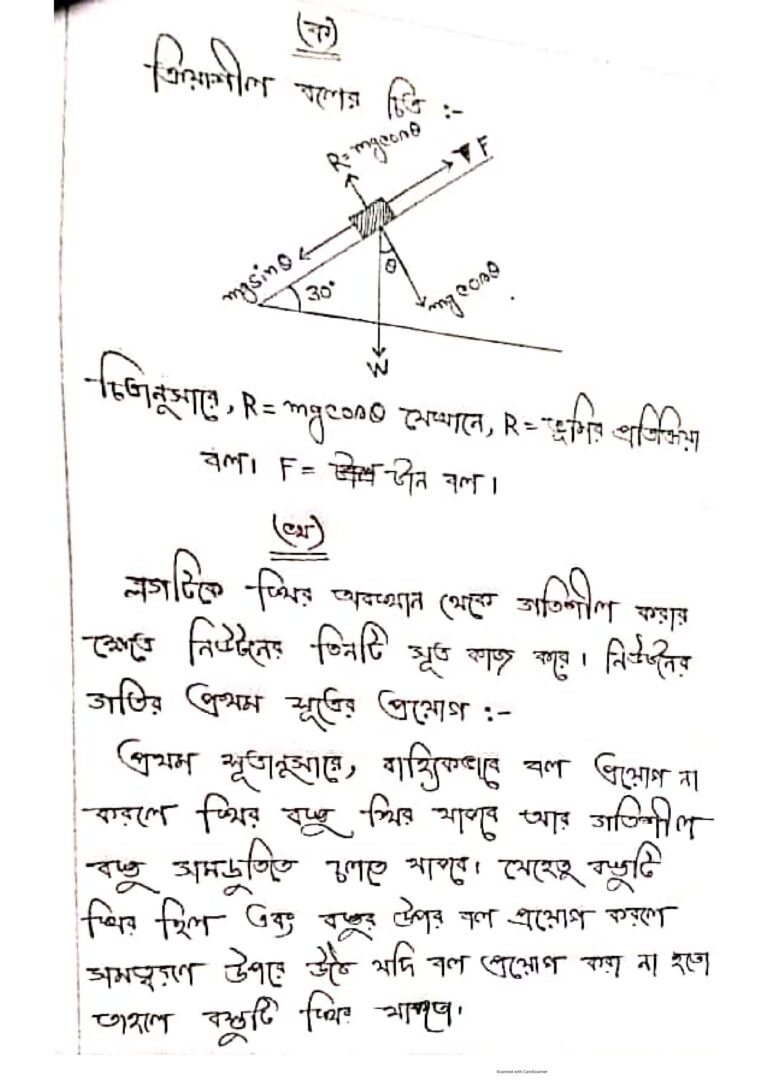 (ক)
ক্রিয়াশীল বলের চিত্র :-
R = mgcosθ
F
mgsinθ
θ
30°
mgcosθ
W
চিত্রানুসারে, R = mgcosθ যেখানে, R = ভূমির প্রতিক্রিয়া
বল। F = টান বল।
(খ)
লগটিকে স্থির অবস্থান থেকে গতিশীল করার
ক্ষেত্রে নিউটনের তিনটি সূত্র কাজ করে। নিউটনের
গতির প্রথম সূত্রের প্রয়োগ :-
প্রথম সূত্রানুসারে, বাহ্যিকভাবে বল প্রয়োগ না
করলে স্থির বস্তু স্থির থাকবে আর গতিশীল
বস্তু সমদ্রুতিতে চলতে থাকবে। যেহেতু বস্তুটি
স্থির ছিল এবং বস্তুর উপর বল প্রয়োগ করলে
সমত্বরণে উপরে উঠে যদি বল প্রয়োগ করা না হতো
তাহলে বস্তুটি স্থির থাকতো।
Scanned with CamScanner